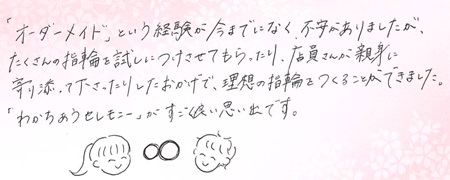 「オーダーメイド」という経験が今までになく、不安がありましたが、
たくさんの指輪を試しにつけさせてもらったり、店員さんが親身に
寄り添って下さったりしたおかげで、理想の指輪をつくることができました。
「わかちあうセレモニー」がすごく良い思い出です。